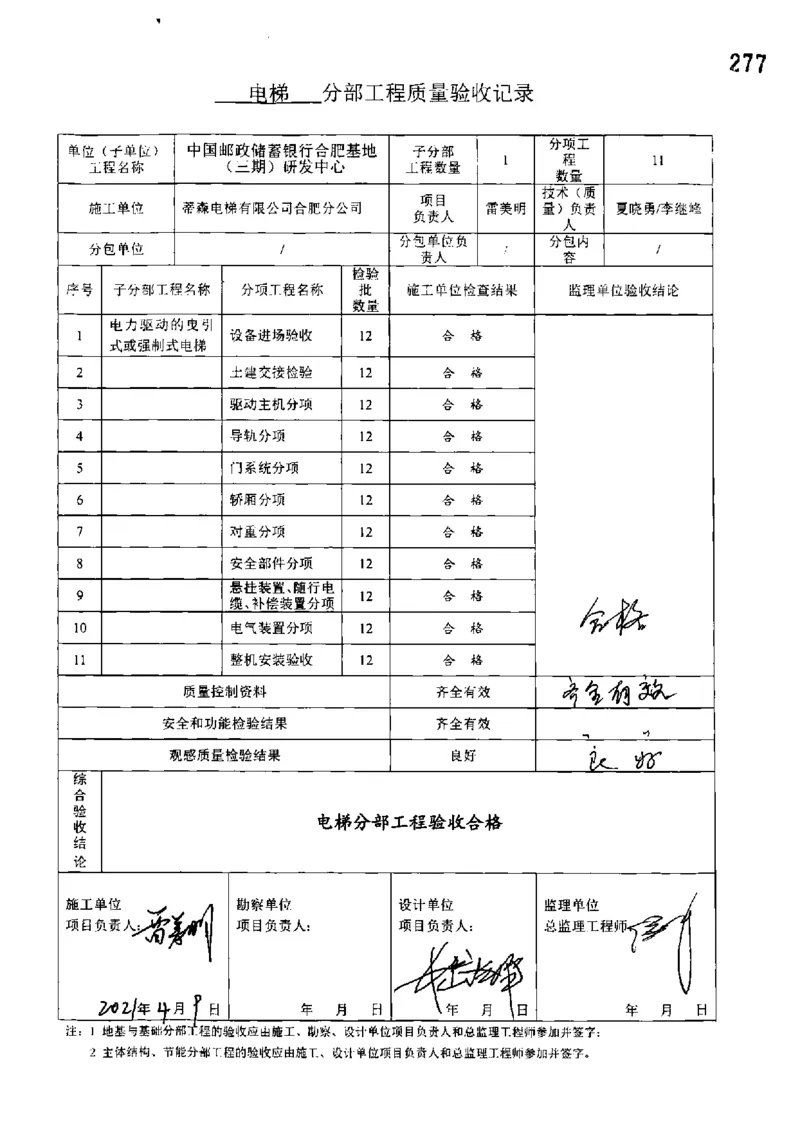 277
电梯 分部工程质量验收记录
单位（子单位）工程名称 中国邮政储蓄银行合肥基地（三期）研发中心 子分部工程数量 1 分项工程数量 11
施工单位 蒂森电梯有限公司合肥分公司 项目负责人 雷美明 技术（质量）负责人 夏晓勇/李继峰
分包单位 / 分包单位负责人 / 分包内容 /
序号 子分部工程名称 分项工程名称 检验批数量 施工单位检查结果 监理单位验收结论
1 电力驱动的曳引式或强制式电梯 设备进场验收 12 合 格
2 土建交接检验 12 合 格
3 驱动主机分项 12 合 格
4 导轨分项 12 合 格
5 门系统分项 12 合 格
6 轿厢分项 12 合 格
7 对重分项 12 合 格
8 安全部件分项 12 合 格
9 悬挂装置、随行电缆、补偿装置分项 12 合 格
10 电气装置分项 12 合 格
11 整机安装验收 12 合 格
合格
质量控制资料 齐全有效 齐全有效
安全和功能检验结果 齐全有效
观感质量检验结果 良好 良好
综合验收结论 电梯分部工程验收合格
施工单位 勘察单位 设计单位 监理单位
项目负责人：雷美明 项目负责人： 项目负责人： 总监理工程师
2021年4月9日 年 月 日 年 月 日 年 月 日
注：1 地基与基础分部工程的验收应由施工、勘察、设计单位项目负责人和总监理工程师参加并签字；
2 主体结构、节能分部工程的验收应由施工、设计单位项目负责人和总监理工程师参加并签字。